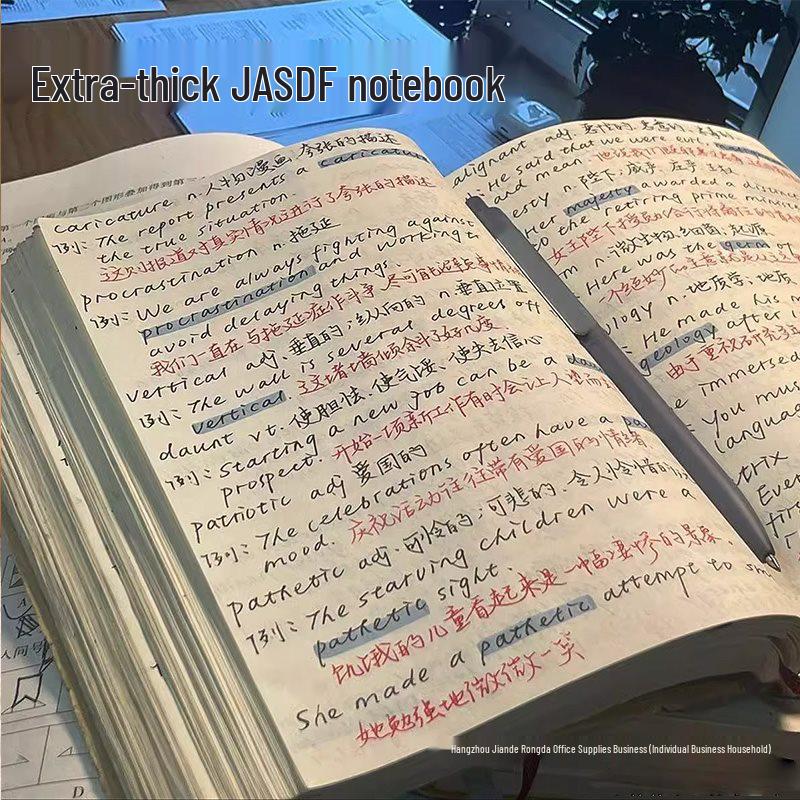 Extra-thick JASDF notebook
caricature n.人物漫画,夸张的描述
例: The report presents a caricature
the true situation.
这则报道对真实情况进行了夸张的描述
procrastination n.拖延
例: We are always fighting against
procrastination and working t
avoid delaying things.
我们一直在与拖延症作斗争,尽可能
vertical adj.垂直的;纵向的 n.垂直位置
例: The wall is several degrees off
vertical. 这堵墙倾斜了好几度
daunt vt.使胆怯,使气馁,使失去信心
例: Starting a new job can be a
prospect. 开始一项新工作有时会让人
patriotic adj 爱国的
例: The celebrations often have a
mood. 庆祝活动往往带有爱国的情绪
pathetic adj.可怜的;可悲的,令人
例: The starving children were a
pathetic sight.
饥饿的儿童看起来是一幅凄惨的景象.
She made a pathetic attempt to sm
她勉强地微微一笑
alignant adj.
: He said that we were
and mean.
esty n.陛下,威严,庄严,王权
Her majesty awarded a
to the retiring prime
n.微生物,细菌,起源
: Here was the germ of
ology n.地质学,地质
: He made his
geology after
由于重视研究
e immersed
: You mus
languag
trix
Ever
fir
D
Hangzhou Jiande Rongda Office Supplies Business (Individual Business Household)